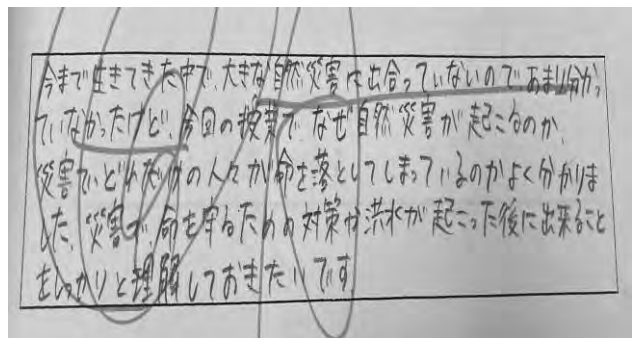 今まで生きてきた中で、大きな自然災害に出合っていないのであまり分かっ
ていなかったけど、今回の授業で、なぜ自然災害が起こるのか、
災害でどれだけの人々が命を落としてしまっているのかよく分かりま
した。災害で、命を守るための対策や洪水が起こった後に出来ること
をしっかりと理解しておきたいです。